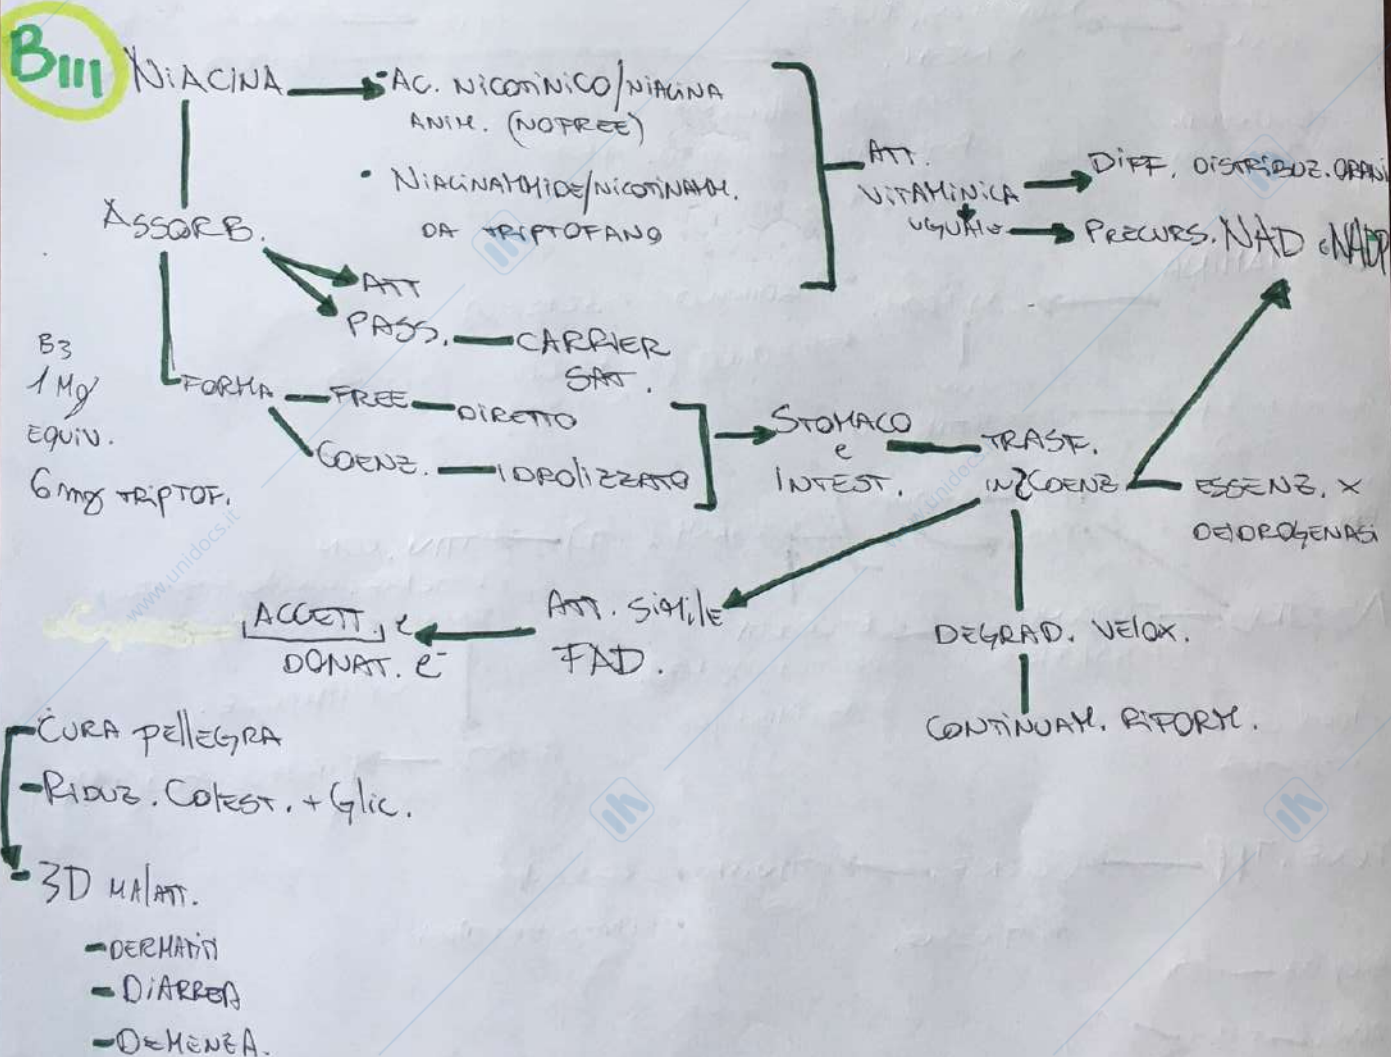 BIII NIACINA
- AC. NICOTINICO/NIACINA
ANIM. (NO FREE)
• NIACINAMMIDE/NICOTINAMM.
DA TRIPTOFANO
ATT.
VITAMINICA
UGUALE
DIFF. DISTRIBUZ. ORGANI
PRECURS. NAD e NADP
ASSORB.
ATT
PASS. — CARRIER
SAT.
B3
1 Mg
EQUIV.
6 mg TRIPTOF.
FORMA — FREE — DIRETTO
COENZ. — IDROLIZZATO
STOMACO
e
INTEST.
TRASF.
IN 2 COENZ
ESSENZ. X
DEIDROGENASI
ATT. SIMILE
FAD.
ACCETT. e
DONAT. e-
DEGRAD. VELOX.
CONTINUAM. RIFORM.
CURA PELLEGRA
- RIDUZ. COLEST. + GLIC.
- 3D MALATT.
- DERMATITI
- DIARREA
- DEMENZA.
www.unidocs.it
www.unidocs